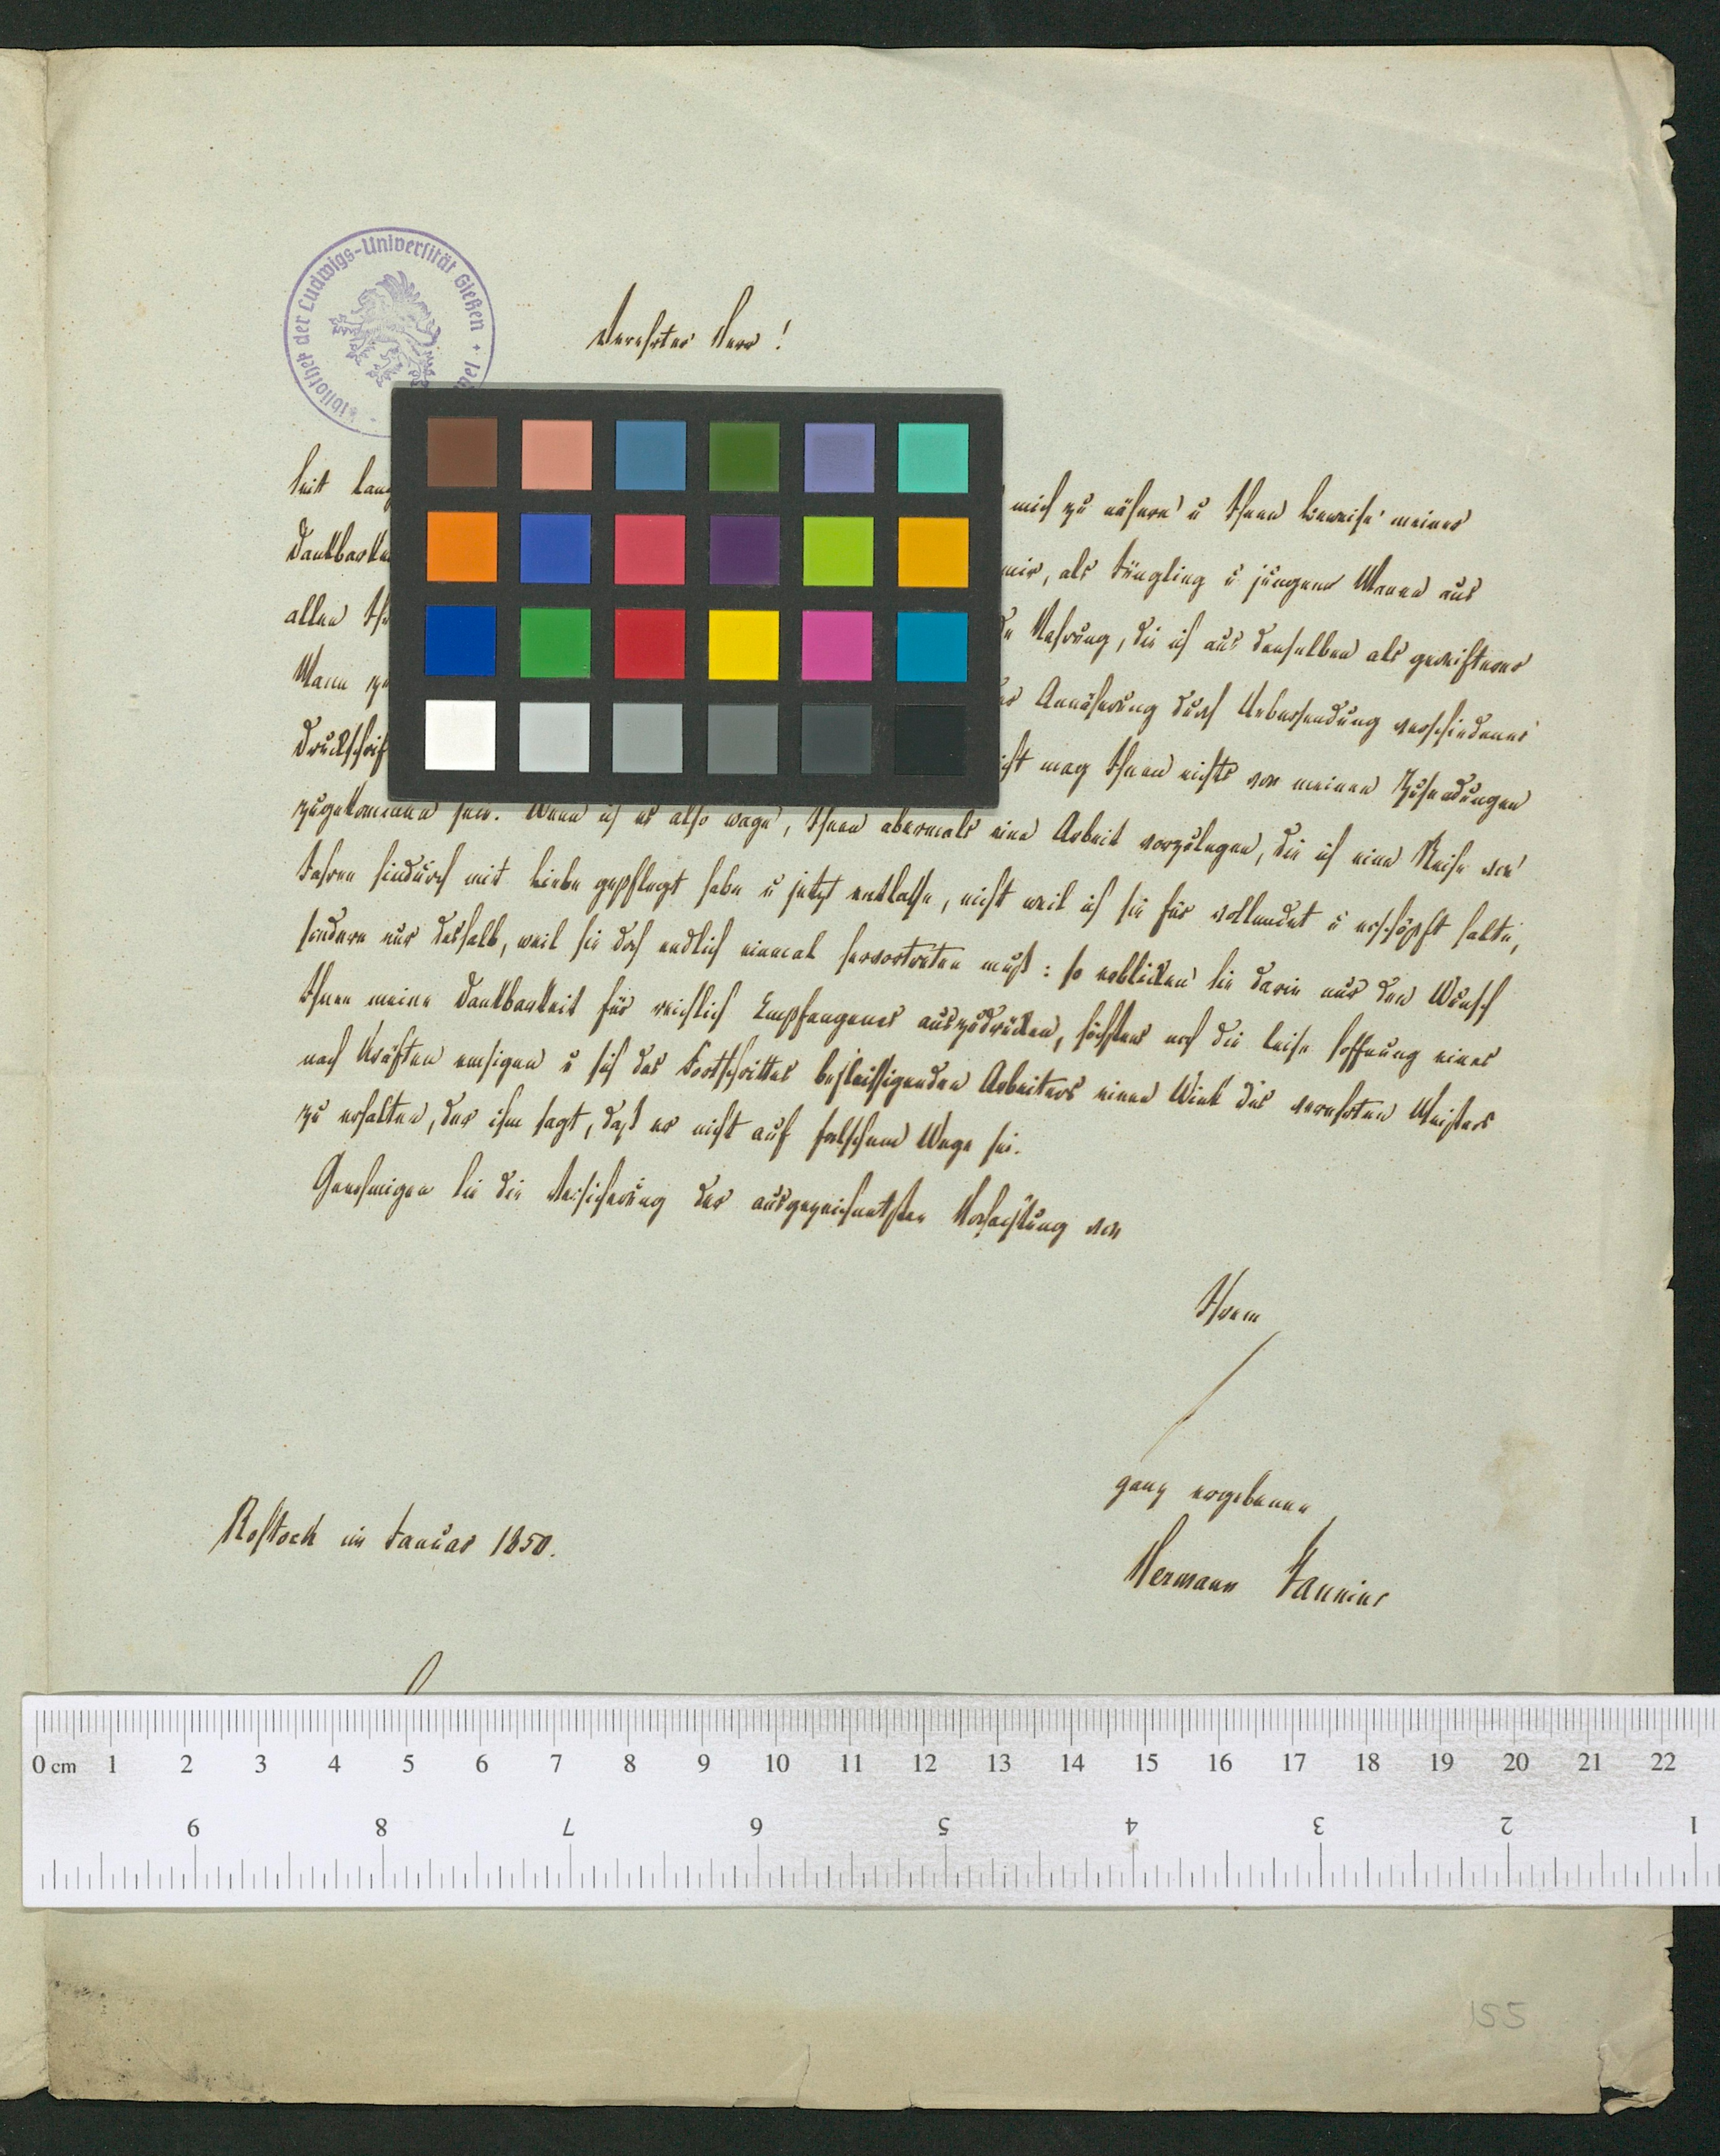 Bibliothek der Ludwigs-Universität Gießen
Verehrter Herr!
Seit lang mich zu nähern u Ihnen Beweise meiner
Dankbarkei mir, als Jüngling u jungem Mann aus
allen Ih Nahrung, die ich aus denselben als gereifterer
Mann zu Annäherung durch Uebersendung verschiedener
Druckschrif mag Ihnen nichts von meinen Zusendungen
zugekommen sein. Wenn ich es also wage, Ihnen abermals eine Arbeit vorzulegen, die ich eine Reihe von
Jahren hindurch mit Liebe gepflegt habe u jetzt entlasse, nicht weil ich sie für vollendet u erschöpft halte,
sondern nur deshalb, weil sie doch endlich einmal hervortreten muß: so erblicken Sie darin nur den Wunsch
Ihnen meine Dankbarkeit für reichlich Empfangenes auszudrücken, höchstens noch die leise Hoffnung eines
nach Kräften emsigen u sich des Fortschrittes befleissigenden Arbeiters einen Wink des verehrten Meisters
zu erhalten, der ihm sagt, daß er nicht auf falschem Wege sei.
Genehmigen Sie die Versicherung der ausgezeichnetsten Hochachtung von
Ihrem
ganz ergebenen
Rostock im Januar 1850.
Hermann Stannius
0 cm 1 2 3 4 5 6 7 8 9 10 11 12 13 14 15 16 17 18 19 20 21 22
9 8 7 6 5 4 3 2 1
155